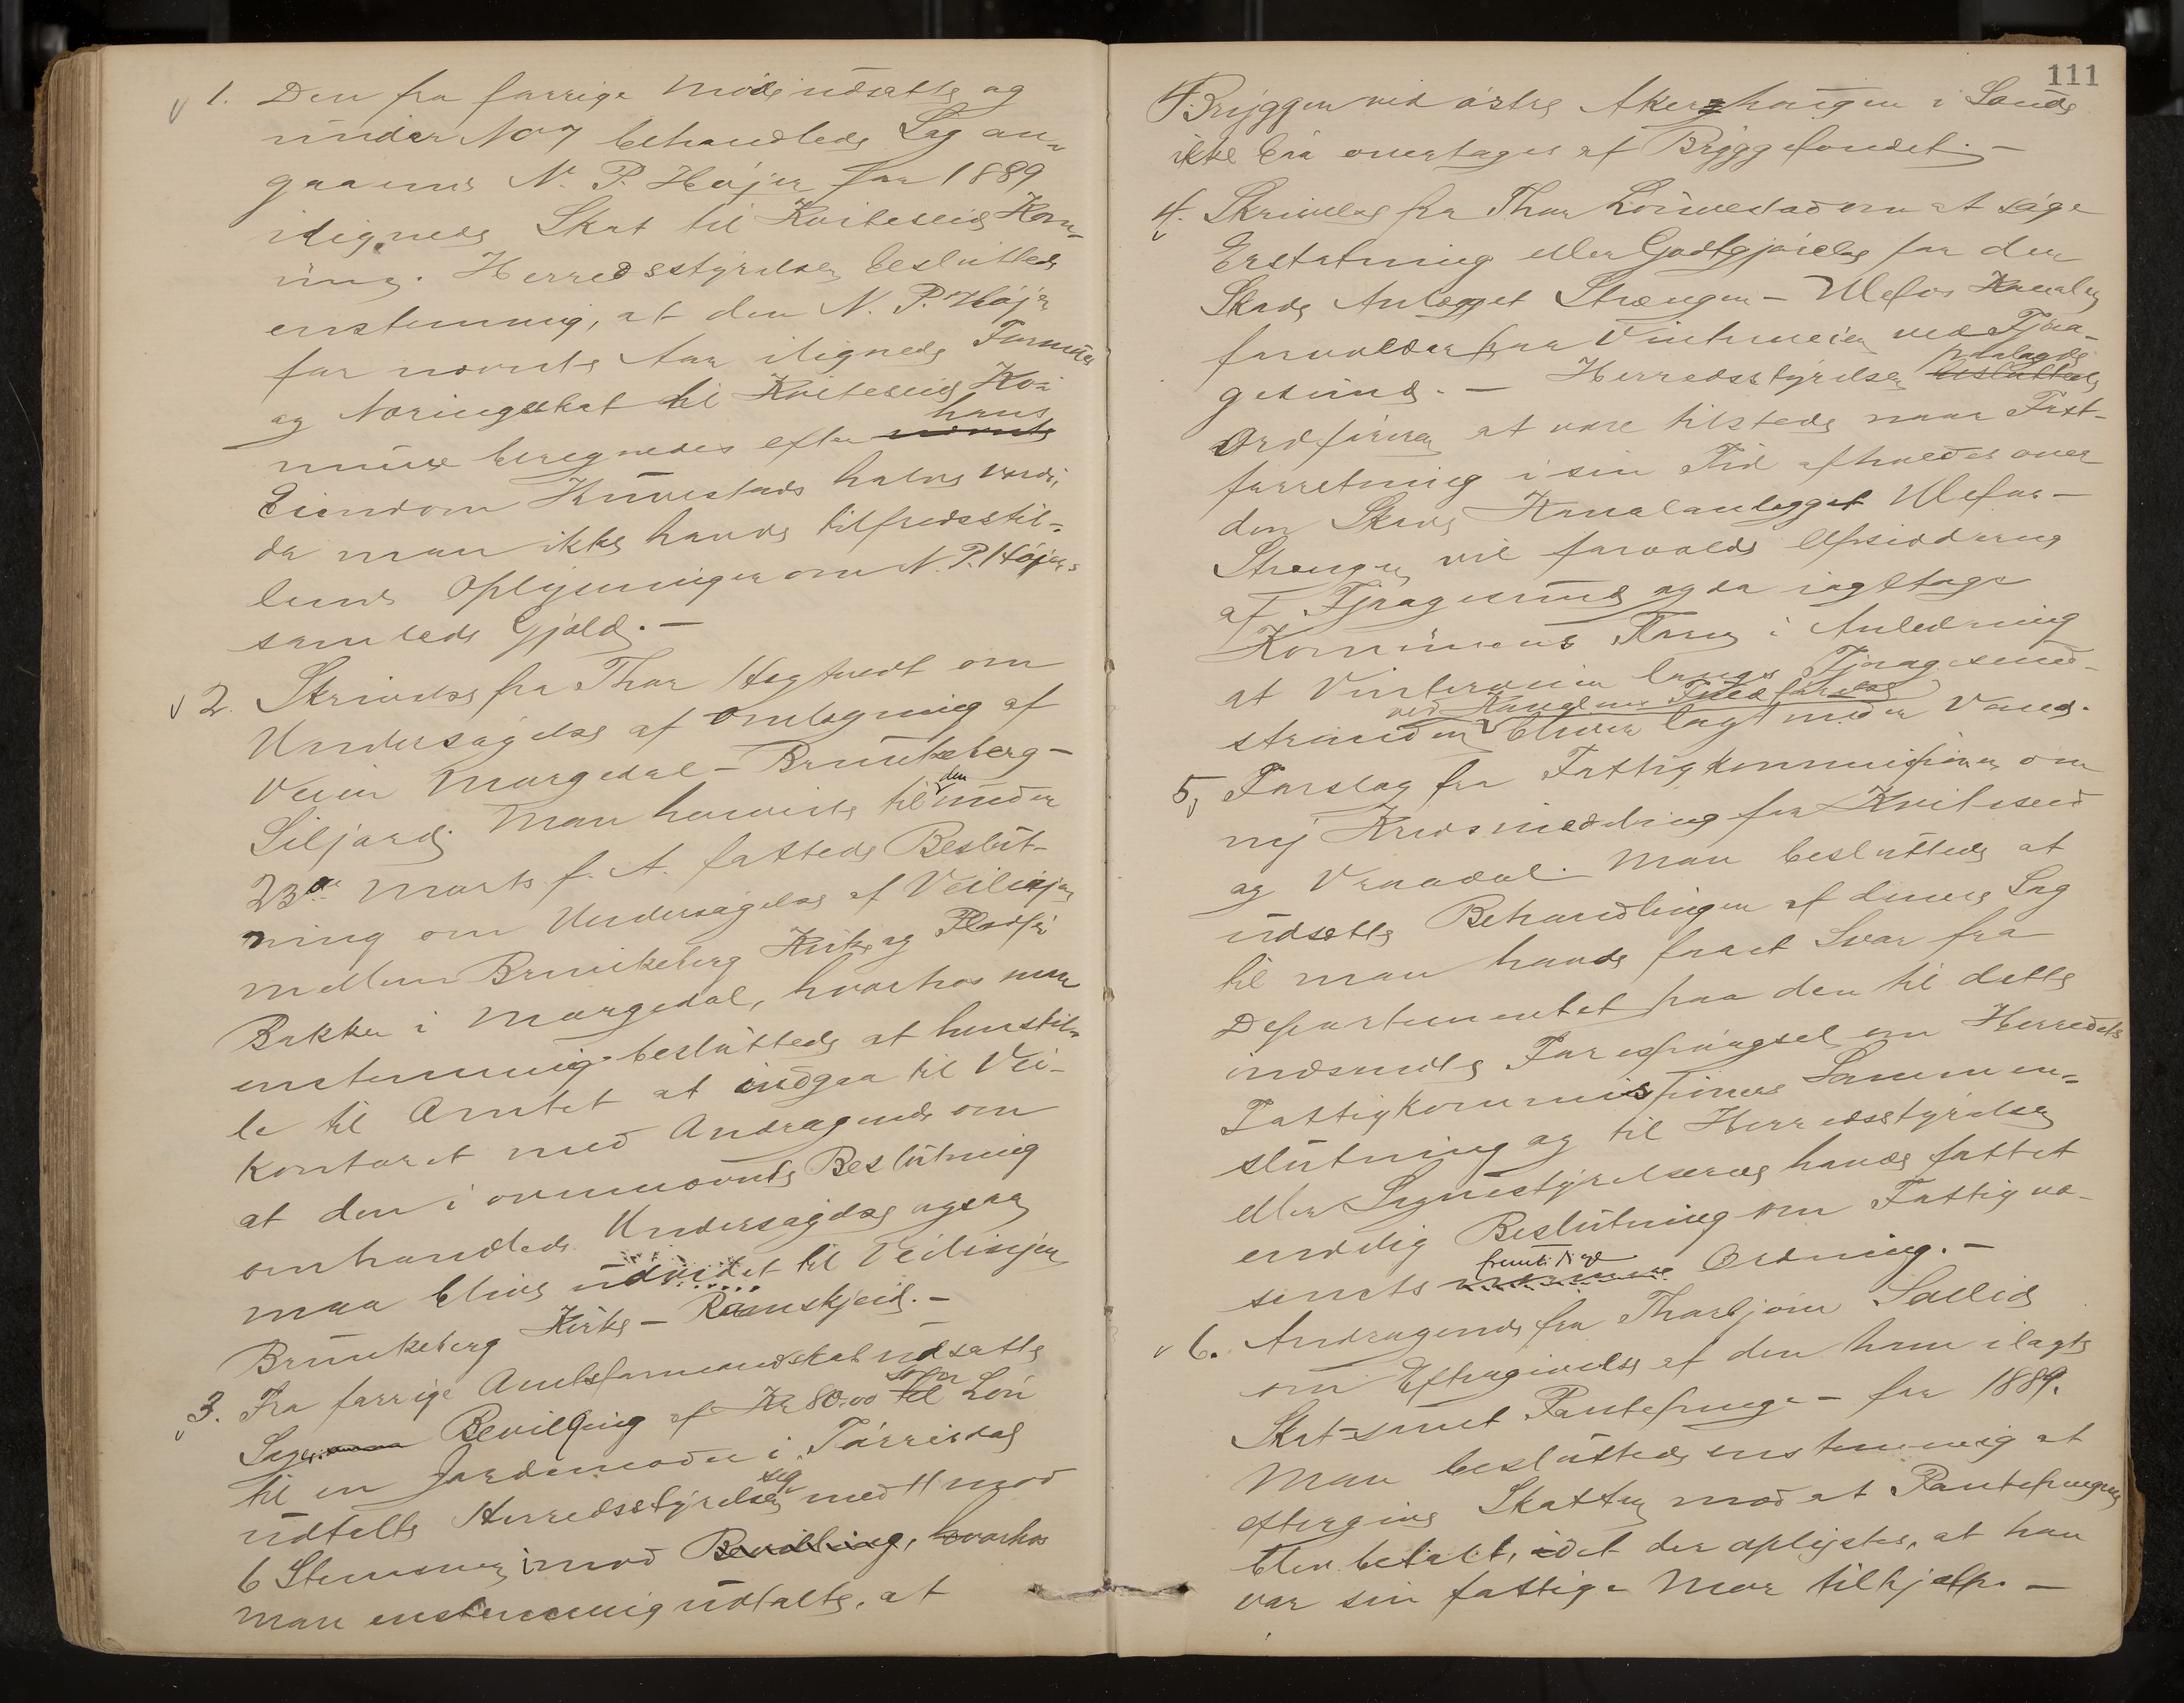 1. Den fra forrige Møde udsatte og
under No 7 behandlede Sag an-
gaaende N. P. Højer for 1889
ilignede Skat til Kviteseid Kom-
une. Herredsstyrelsen besluttede
enstemmig, at den N. P. Højer
for nævnte Aar ilignede Formues
og Næringsskat til Kviteseid Ko-
mune beregnedes efter hans nævnte
Eiendom Kuvestads halve Værdi,
da man ikke havde tilfredsstil-
lende Oplysninger om N. P. Højers
samlede Gjæld. —
2. Skrivelse fra Thor Hegtvedt om
Undersøgelse af Omlægning af
Veien Morgedal - Brunkeberg -
Siljord. Man henviste til den under
23de Marts f. A. fattede Beslut-
ning om Undersøgelse af Veilinjen
mellem Brunkeberg Kirke og
Bakken i Morgedal, hvorhos man
enstemmig besluttede at henstil-
le til Amtet at indgaa til Vei-
kontoret med Andragende om
at den i ovennævnte Beslutning
omhandlede Undersøgelse ogsaa
maa blive udvidet til Veilinjen
Brunkeberg Kirke - Ramskjeid. —
3. Fra forrige Amtsformandskab udsatte
Sager Bevilgning af Kr 80.00 som til Løn
til en Jordemoder i Tørrisdal
udtalte Herredsstyrelsen sig med 11 mod
6 Stemmer imod Bevilling, hvorhos
man enstemmig udtalte, at
111
Bryggen ved østre Akerhaugen i Sande
ikke bør overtages af Bryggefondet. —
4. Skrivelse fra Thor Lønnestad om at søge
Erstatning eller Godtgjørelse for den
Skade Anlægget Strængen - Ulefos Kanalen
forvolder paa Vinterveien ved Fjaa-
gesund. — Herredsstyrelsen paalagde besluttede
Ordføreren at være tilstede naar Taxt-
forretning i sin Tid afholdes over
den Skade Kanalanlægget Ulefos -
Strengen vil forvolde Opsidderne
af Fjaagesund og da iagttage
Kommunens Tarv i Anledning
at Vinterveien langs Fjaagesund-
stranden ved Kanalens Fuldførelse bliver lagt under Vand.
5, Forslag fra Fattigkommissionen om
ny Kredsinddeling for Kviteseid
og Vraadal. Man besluttede at
udsætte Behandlingen af denne Sag
til man havde faaet Svar fra
Departementet paa den til dette
indsendte Forespørgsel om Herredets
Fattigkommissioners Sammen-
slutning og til Herredsstyrelsen
eller Sognestyrelserne havde fattet
endelig Beslutning om Fattigvæ-
senets fremtidige Ordning. —
6. Andragende fra Thorbjørn Sælid
om Eftergivelse af den ham ilagte
Skat samt Pantepenge - for 1889.
Man besluttede enstemmig at
eftergive Skatten mod at Pantepengene
blev betalt, idet der oplystes, at han
var sin fattige Mor tilhjælp. —